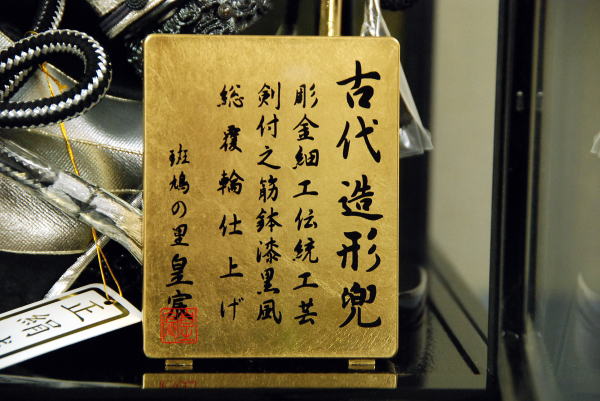 古代造形兜
彫金細工伝統工芸
剣付之筋鉢漆黒風
総覆輪仕上げ
斑鳩の里皇宸
正絹